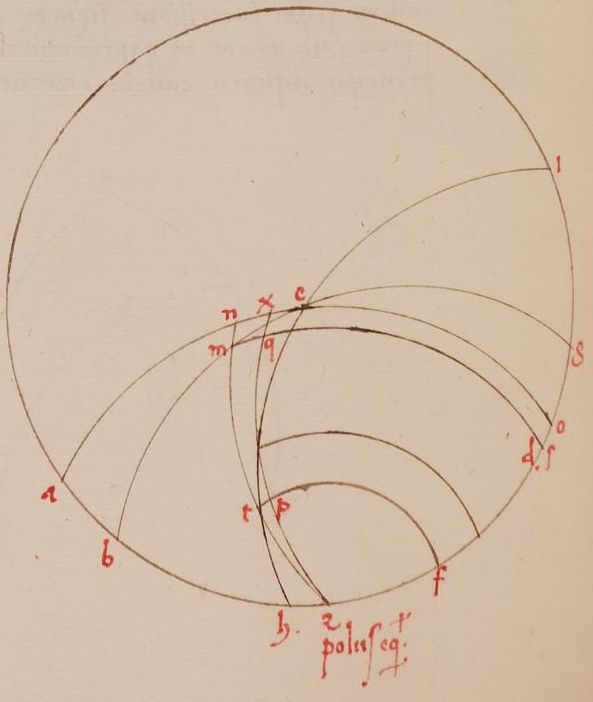 l
n x c
m q
g
o
d. s
a
t p
b
f
h. z
polus eq̃.